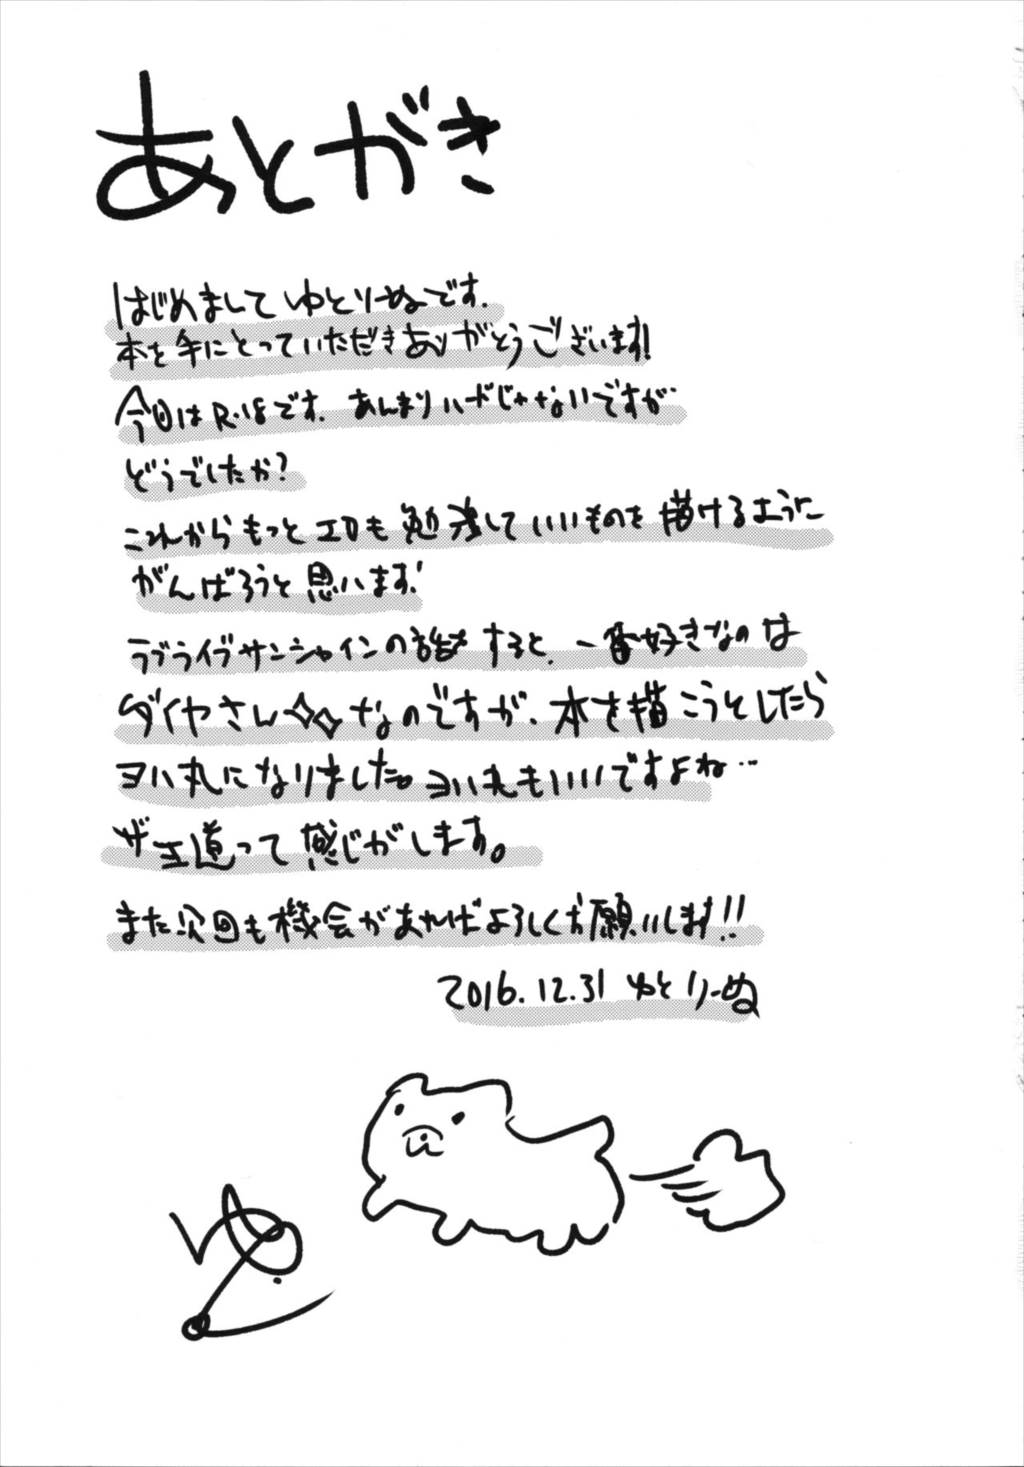 あとがき
はじめまして ゆとりーぬです.
本を手にとっていただきありがとうございます!
今回はR-18です. あんまりハードじゃないですが
どうでしたか?
これからもっとエロも勉強していいものを描けるように
がんばろうと思います!
ラブライブサンシャインの話すると、一番好きなのは
ダイヤさん✧✧なのですが、本を描こうとしたら
ヨハ丸になりました。ヨハ丸もいいですよね…
ザ王道って感じがします。
また次回も機会があればよろしくお願いします!!
2016.12.31 ゆとりーぬ